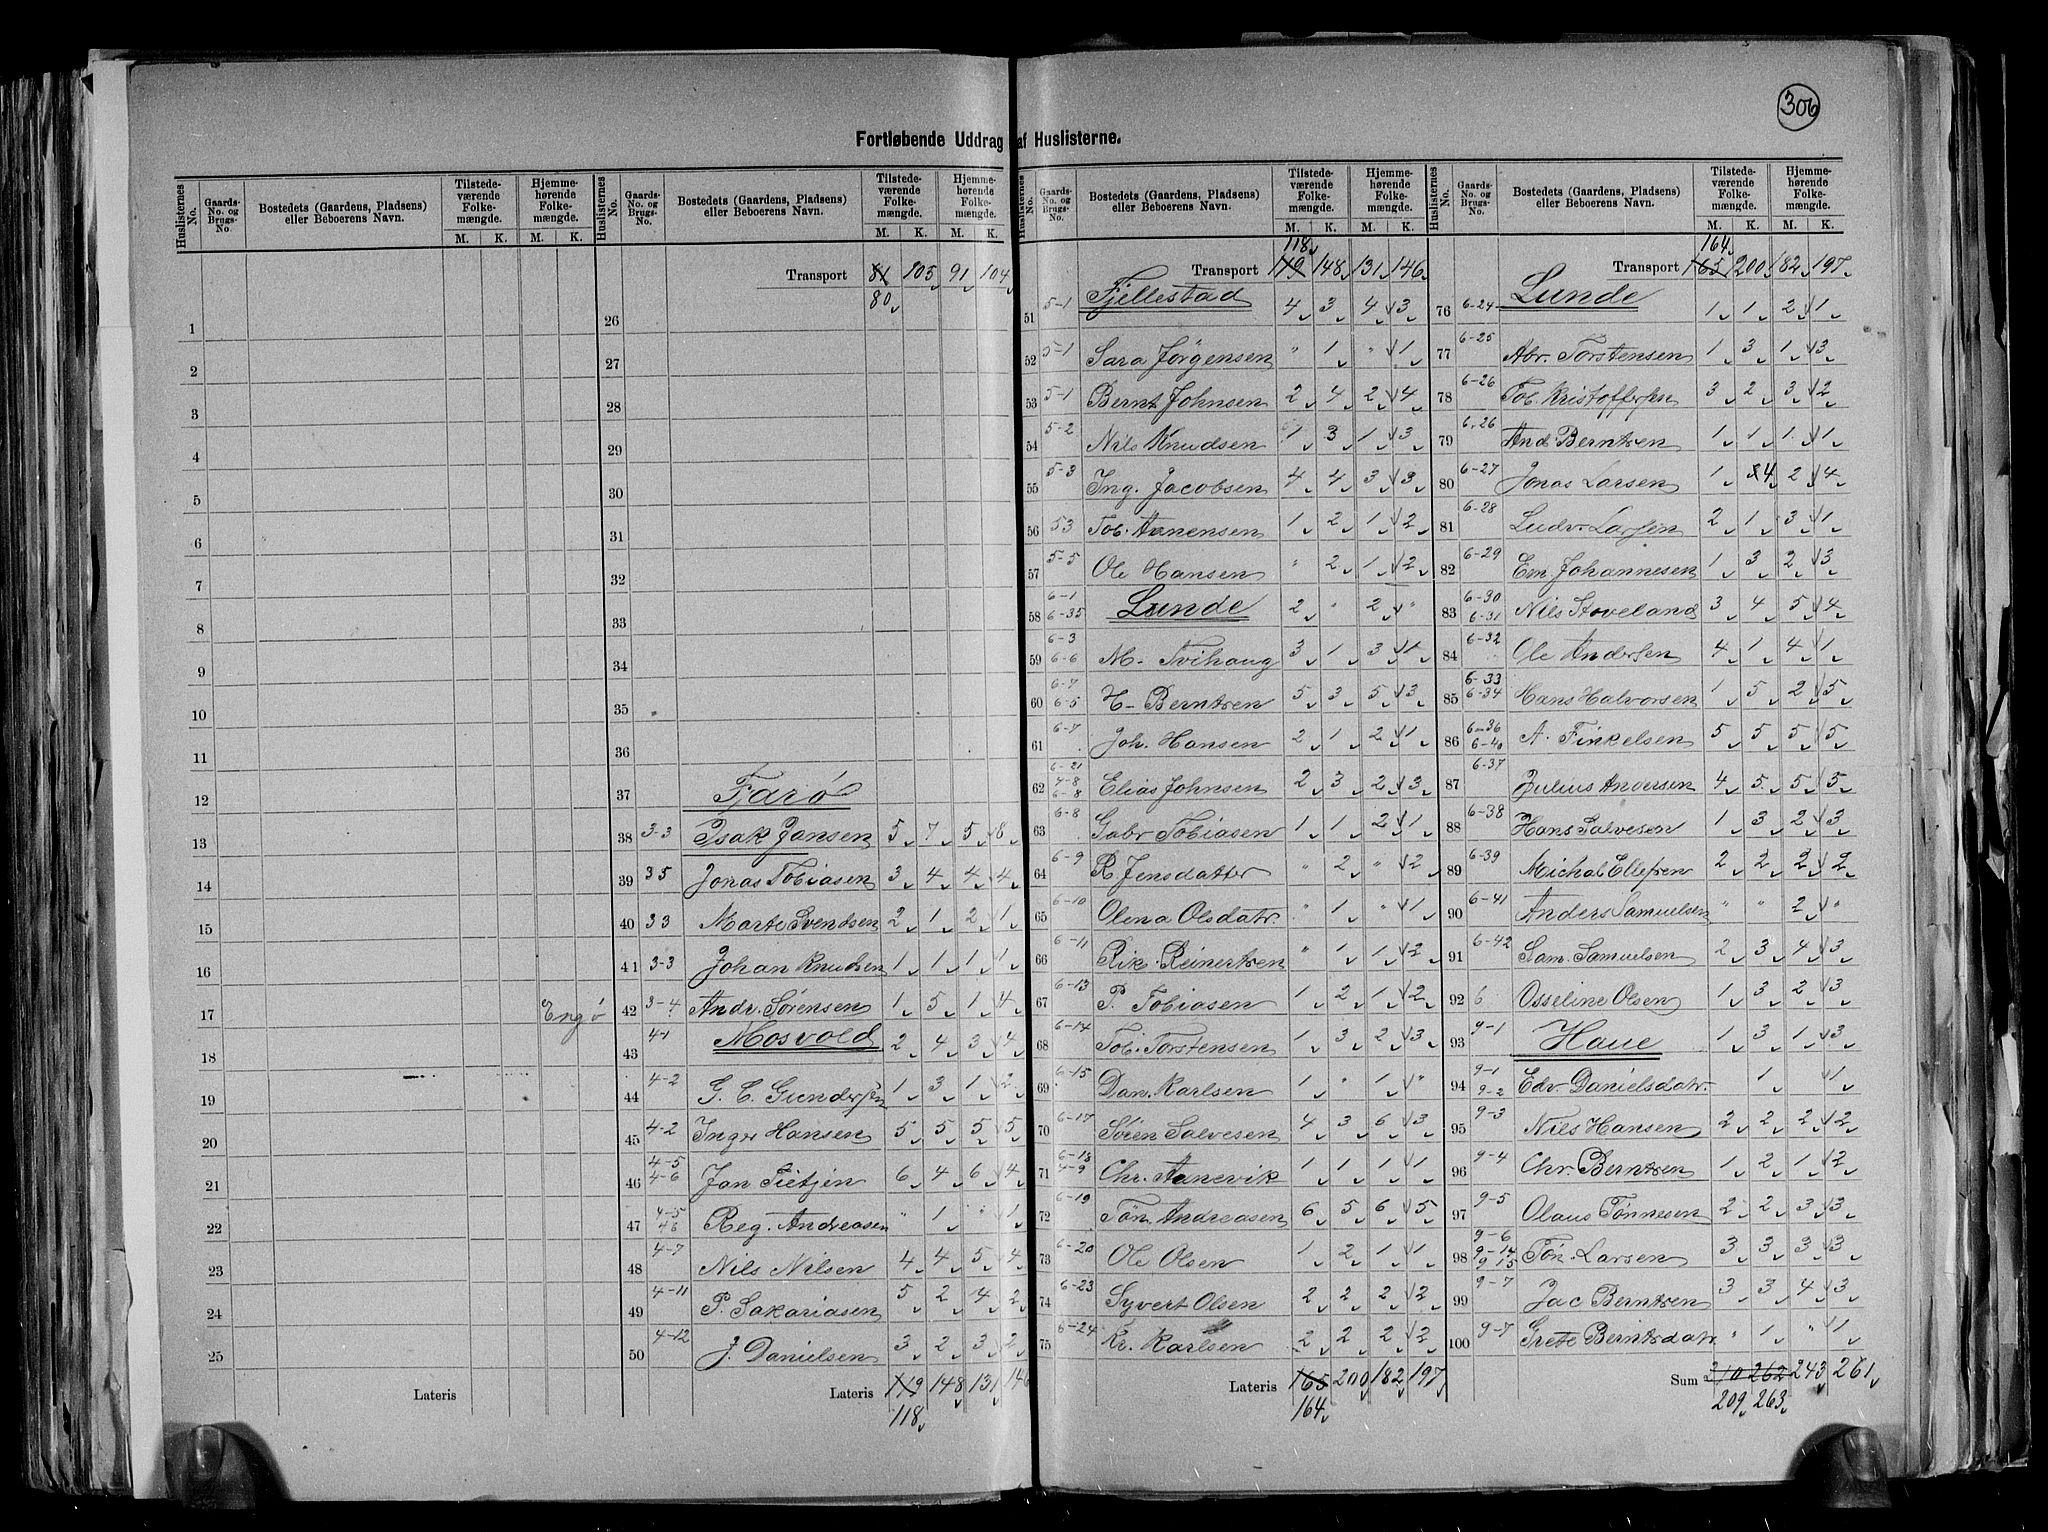 306
Fortløbende Uddrag af Huslisternes.
Huslisternes No. Gaards-No. og Brugs-No. Bostedets (Gaardens, Pladsens) eller Beboerens Navn. Tilstedeværende Folkemængde. M. K. Hjemmehørende Folkemængde. M. K.
1
2
3
4
5
6
7
8
9
10
11
12
13
14
15
16
17 Engø
18
19
20
21
22
23
24
25
Lateris
Huslisternes No. Gaards-No. og Brugs-No. Bostedets (Gaardens, Pladsens) eller Beboerens Navn. Tilstedeværende Folkemængde. M. K. Hjemmehørende Folkemængde. M. K.
Transport 81 105 91 104
80
26
27
28
29
30
31
32
33
34
35
36
37 Fjarø
38 3-3 Isak Jansen 5 7 5 8
39 3 5 Jonas Tobiasen 3 4 4 4
40 3 3 Marte Svendsen 2 1 2 1
41 3-3 Johan Knudsen 1 1 1 1
42 3-4 Andr. Sørensen 1 5 1 4
43 4-1 Mosvold 2 4 3 4
44 4-2 G. C. Gundersen 1 3 1 2
45 4-2 Inger Hansen 5 5 5 5
46 4-5 4-6 Jan Tietjen 6 4 6 4
47 4-5 4 6 Reg. Andreasen " 1 " 1
48 4-7 Nils Nilsen 4 4 5 4
49 4-11 P. Sakariasen 5 2 4 2
50 4-12 J. Danielsen 3 2 3 2
Lateris 119 148 131 146
118
Huslisternes No. Gaards-No. og Brugs-No. Bostedets (Gaardens, Pladsens) eller Beboerens Navn. Tilstedeværende Folkemængde. M. K. Hjemmehørende Folkemængde. M. K.
118
Transport 119 148 131 146
51 5-1 Fjellestad 4 3 4 3
52 5-1 Sara Jørgensen " 1 " 1
53 5-1 Bernt Johnsen 2 4 2 4
54 5-2 Nils Knudsen 1 3 1 3
55 5-3 Ing. Jacobsen 4 4 3 3
56 5 3 Tob. Aanensen 1 2 1 2
57 5-5 Ole Hansen " 2 1 2
58 6-1 6-35 Lunde 2 " 2 "
59 6-3 6-6 M. Tvihaug 3 1 3 1
60 6-7 6-5 H. Berntsen 5 3 5 3
61 6-7 Joh. Hansen 2 1 2 1
62 6-21 4-8 6-8 Elias Johnsen 2 3 2 3
63 6-8 Gabr Tobiasen 1 1 2 1
64 6-9 R. Jensdatter " 2 " 2
65 6-10 Olena Olsdatr. " 1 " 1
66 6-11 Rik. Reinertsen " 1 1 2
67 6-13 P. Tobiasen 1 2 1 2
68 6-14 Tob. Torstensen 1 3 2 3
69 6-15 Dan. Karlsen 1 " 1 "
70 6-17 Søren Salvesen 4 3 6 3
71 6-18 4-9 Chr. Aanevik 1 1 1 1
72 6-19 Tøn. Andreasen 6 5 6 5
73 6-20 Ole Olsen 1 2 1 1
74 6-23 Syvert Olsen 2 2 2 2
75 6-24 Kr. Karlsen 2 2 2 2
Lateris 165 200 182 197
164
Huslisternes No. Gaards-No. og Brugs-No. Bostedets (Gaardens, Pladsens) eller Beboerens Navn. Tilstedeværende Folkemængde. M. K. Hjemmehørende Folkemængde. M. K.
164
Transport 165 200 182 197
76 6-24 Lunde 1 1 2 1
77 6-25 Abr. Torstensen 1 3 1 3
78 6-26 Tob. Kristoffersen 3 2 3 2
79 6-26 And. Berntsen 1 1 1 1
80 6-27 Jonas Larsen 1 4 2 4
81 6-28 Ludv. Larsen 2 1 3 1
82 6-29 Em Johannesen 1 3 2 3
83 6-30 6-31 Nils Stoveland 3 4 5 4
84 6-32 Ole Andersen 4 1 4 1
85 6-33 6-34 Hans Halvorsen 1 5 2 5
86 6-36 6-40 A. Finkelsen 5 5 5 5
87 6-37 Julius Andersen 4 5 5 5
88 6-38 Hans Salvesen 1 3 2 3
89 6-39 Michal Ellefsen 2 2 2 2
90 6-41 Anders Samuelsen " " 2 "
91 6-42 Sam. Samuelsen 2 3 4 3
92 6 Osseline Olsen 1 3 2 3
93 9-1 Haue 1 3 1 3
94 9-1 9-2 Edv. Danielsdatr. 1 1
95 9-3 Nils Hansen 2 2 2 2
96 9-4 Chr. Berntsen 1 2 1 2
97 9-5 Olaus Tønnesen 2 2 3 3
98 9-6 9-14 9 15 Tøn. Larsen 3 3 3 3
99 9-7 Jac Berntsen 3 3 4 3
100 9-7 Grete Berntsdatr. " 1 " 1
Sum 210 262 243 261
209 263